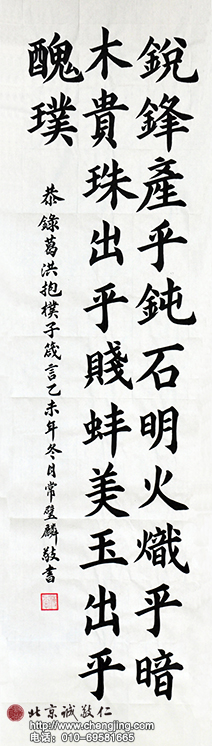 銳鋒產乎鈍石明火熾乎暗
木貴珠出乎賤蚌美玉出乎
醜璞
恭錄葛洪抱樸子箴言乙未年冬月常壁麟敬書
北京诚敬仁
http://www.chengjing.com
电话：010-69581665